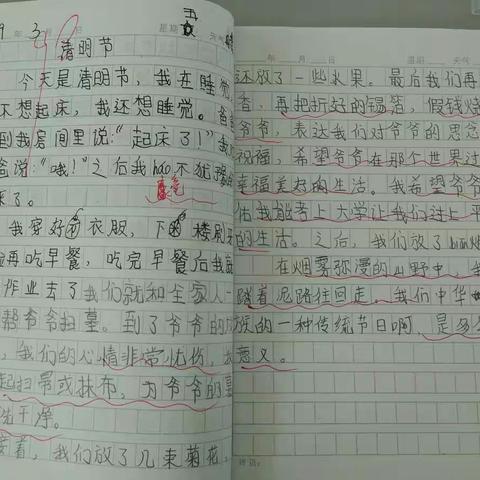 9年3 日 星期五 天气
清明节
今天是清明节，我在睡觉
不想起床，我还想睡觉。爸爸
到我房间里说："起床了！"我
爸说："哦！"之后我hao不犹豫
来了。
我穿好衣服，下楼刷
再吃早餐，吃完早餐后我
作业去了我们就和全家人一
帮爷爷扫墓。到了爷爷的
，我们的心情非常忧伤，
起扫帚或抹布，为爷爷的
干净。
接着，我们放了几束菊花。
年 月 日 星期 天气
还放了一些水果。最后我们再
香，再把折好的锡箔，假钱烧
爷爷，表达我们对爷爷的思念
祝福，希望爷爷在那个世界过
幸福美好的生活。我希望爷爷
佑我能考上大学让我们过上平
的生活。之后，我们放了
在烟雾弥漫的山野中，我
随着泥路往回走。我们中华
族的一种传统节日啊，是多么
意义。